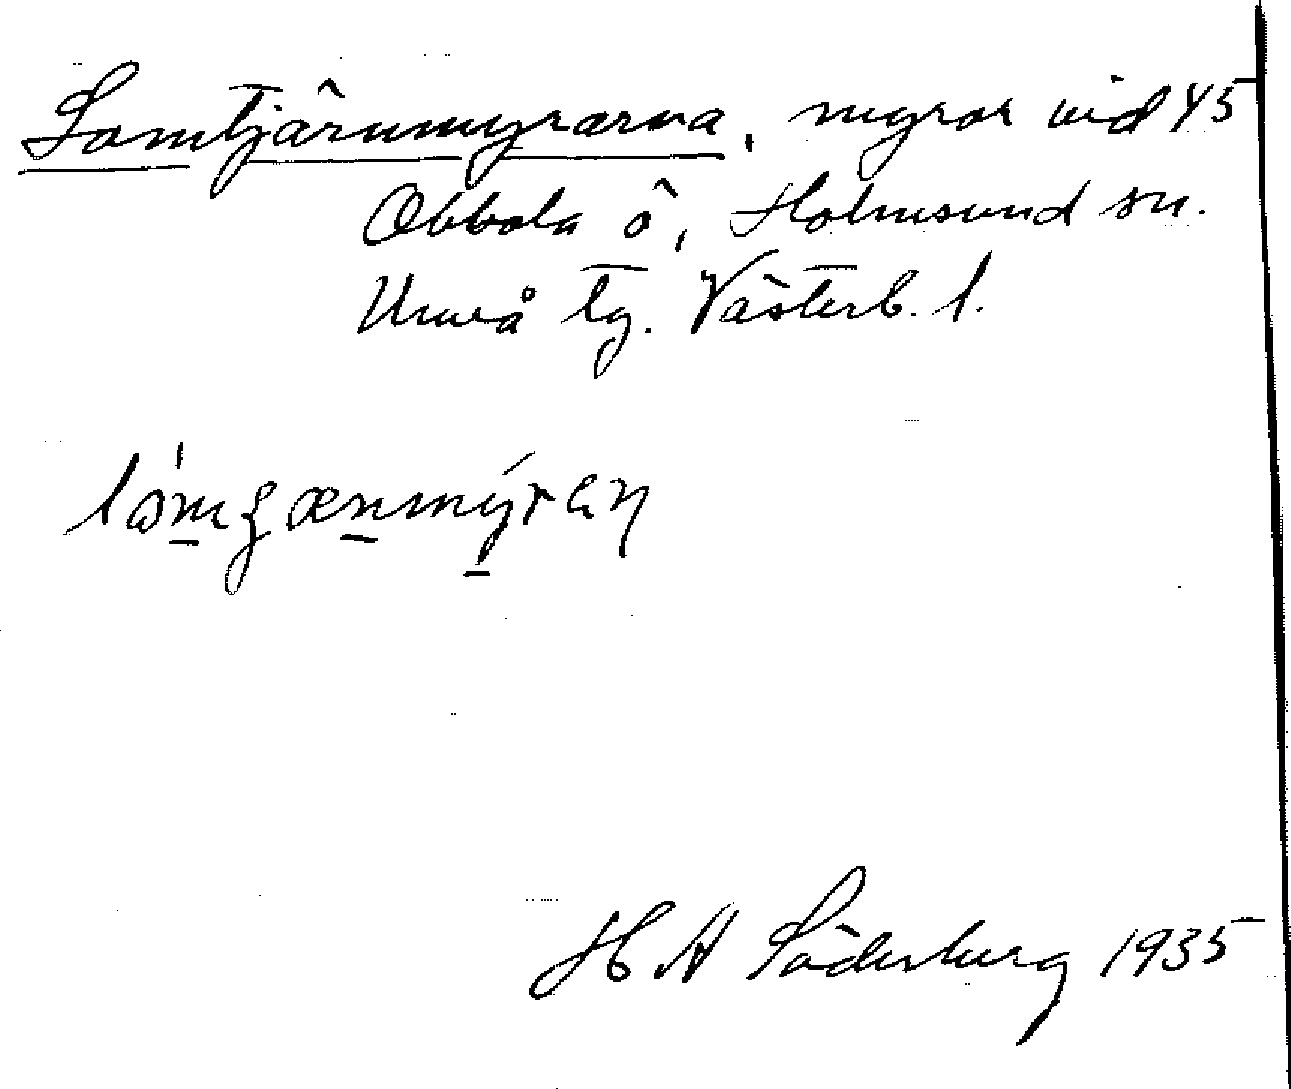 Lomtjärnmyrarna, myrar vid 45
Obbola ö, Holmsund sn.
Umeå tg. Västerb. l.
H A Söderberg 1935